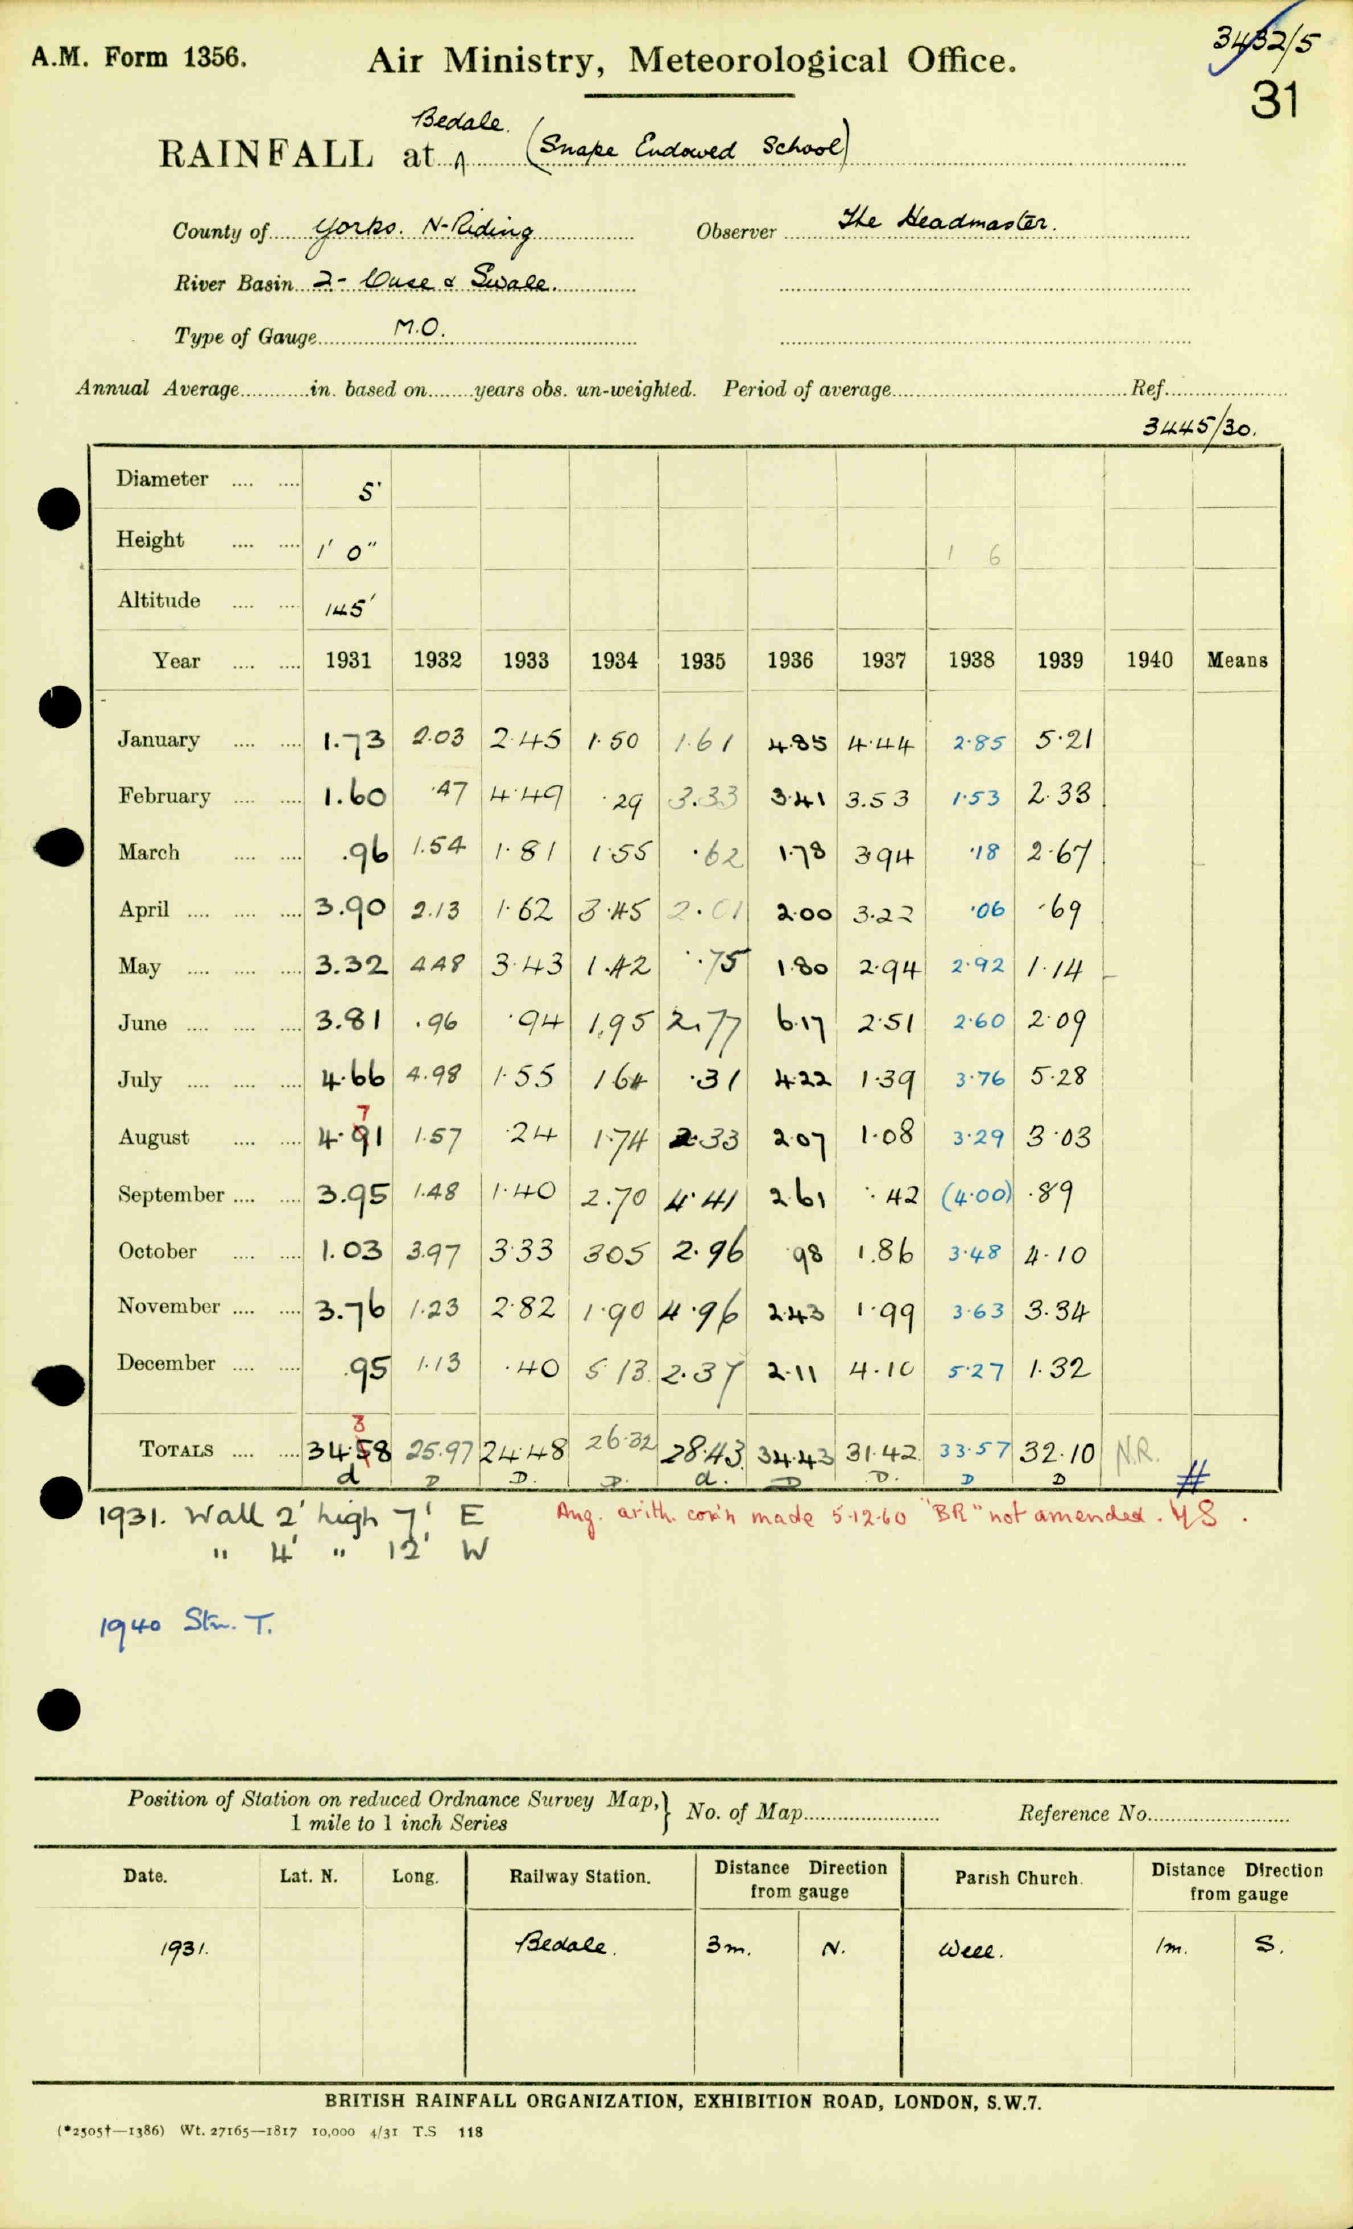 3432/5
A.M. Form 1356. Air Ministry, Meteorological Office.
31
Bedale.
RAINFALL at (Snape Endowed School)
County of Yorks. N-Riding Observer The Headmaster.
River Basin 2- Ouse & Swale.
Type of Gauge M.O.
Annual Average in. based on years obs. un-weighted. Period of average Ref.
3445/30.
Diameter 5"
Height 1' 0" 1 6
Altitude 145'
Year 1931 1932 1933 1934 1935 1936 1937 1938 1939 1940 Means
January 1.73 2.03 2.45 1.50 1.61 4.85 4.44 2.85 5.21
February 1.60 .47 4.49 .29 3.33 3.41 3.53 1.53 2.33
March .96 1.54 1.81 1.55 .62 1.78 3.94 .18 2.67
April 3.90 2.13 1.62 3.45 2.01 2.00 3.22 .06 .69
May 3.32 4.48 3.43 1.42 .75 1.80 2.94 2.92 1.14
June 3.81 .96 .94 1.95 2.77 6.17 2.51 2.60 2.09
July 4.66 4.98 1.55 1.64 .31 4.22 1.39 3.76 5.28
7
August 4.91 1.57 .24 1.74 2.33 2.07 1.08 3.29 3.03
September 3.95 1.48 1.40 2.70 4.41 2.61 .42 (4.00) .89
October 1.03 3.97 3.33 3.05 2.96 .98 1.86 3.48 4.10
November 3.76 1.23 2.82 1.90 4.96 2.43 1.99 3.63 3.34
December .95 1.13 .40 5.13 2.37 2.11 4.10 5.27 1.32
3
TOTALS 34.58 25.97 24.48 26.32 28.43 34.43 31.42 33.57 32.10 N.R.
d D D. D. d. D D. D D #
1931. Wall 2' high 7' E Aug. arith. corr'n made 5.12.60 "BR" not amended.
" 4' " 12' W
1940 Stn. T.
Position of Station on reduced Ordnance Survey Map, } No. of Map Reference No.
1 mile to 1 inch Series
Date. Lat. N. Long. Railway Station. Distance Direction from gauge Parish Church. Distance Direction from gauge
1931. Bedale. 3m. N. Well. 1m. S.
BRITISH RAINFALL ORGANIZATION, EXHIBITION ROAD, LONDON, S.W.7.
(*2505†—1386) Wt. 27165—1817 10,000 4/31 T.S 118